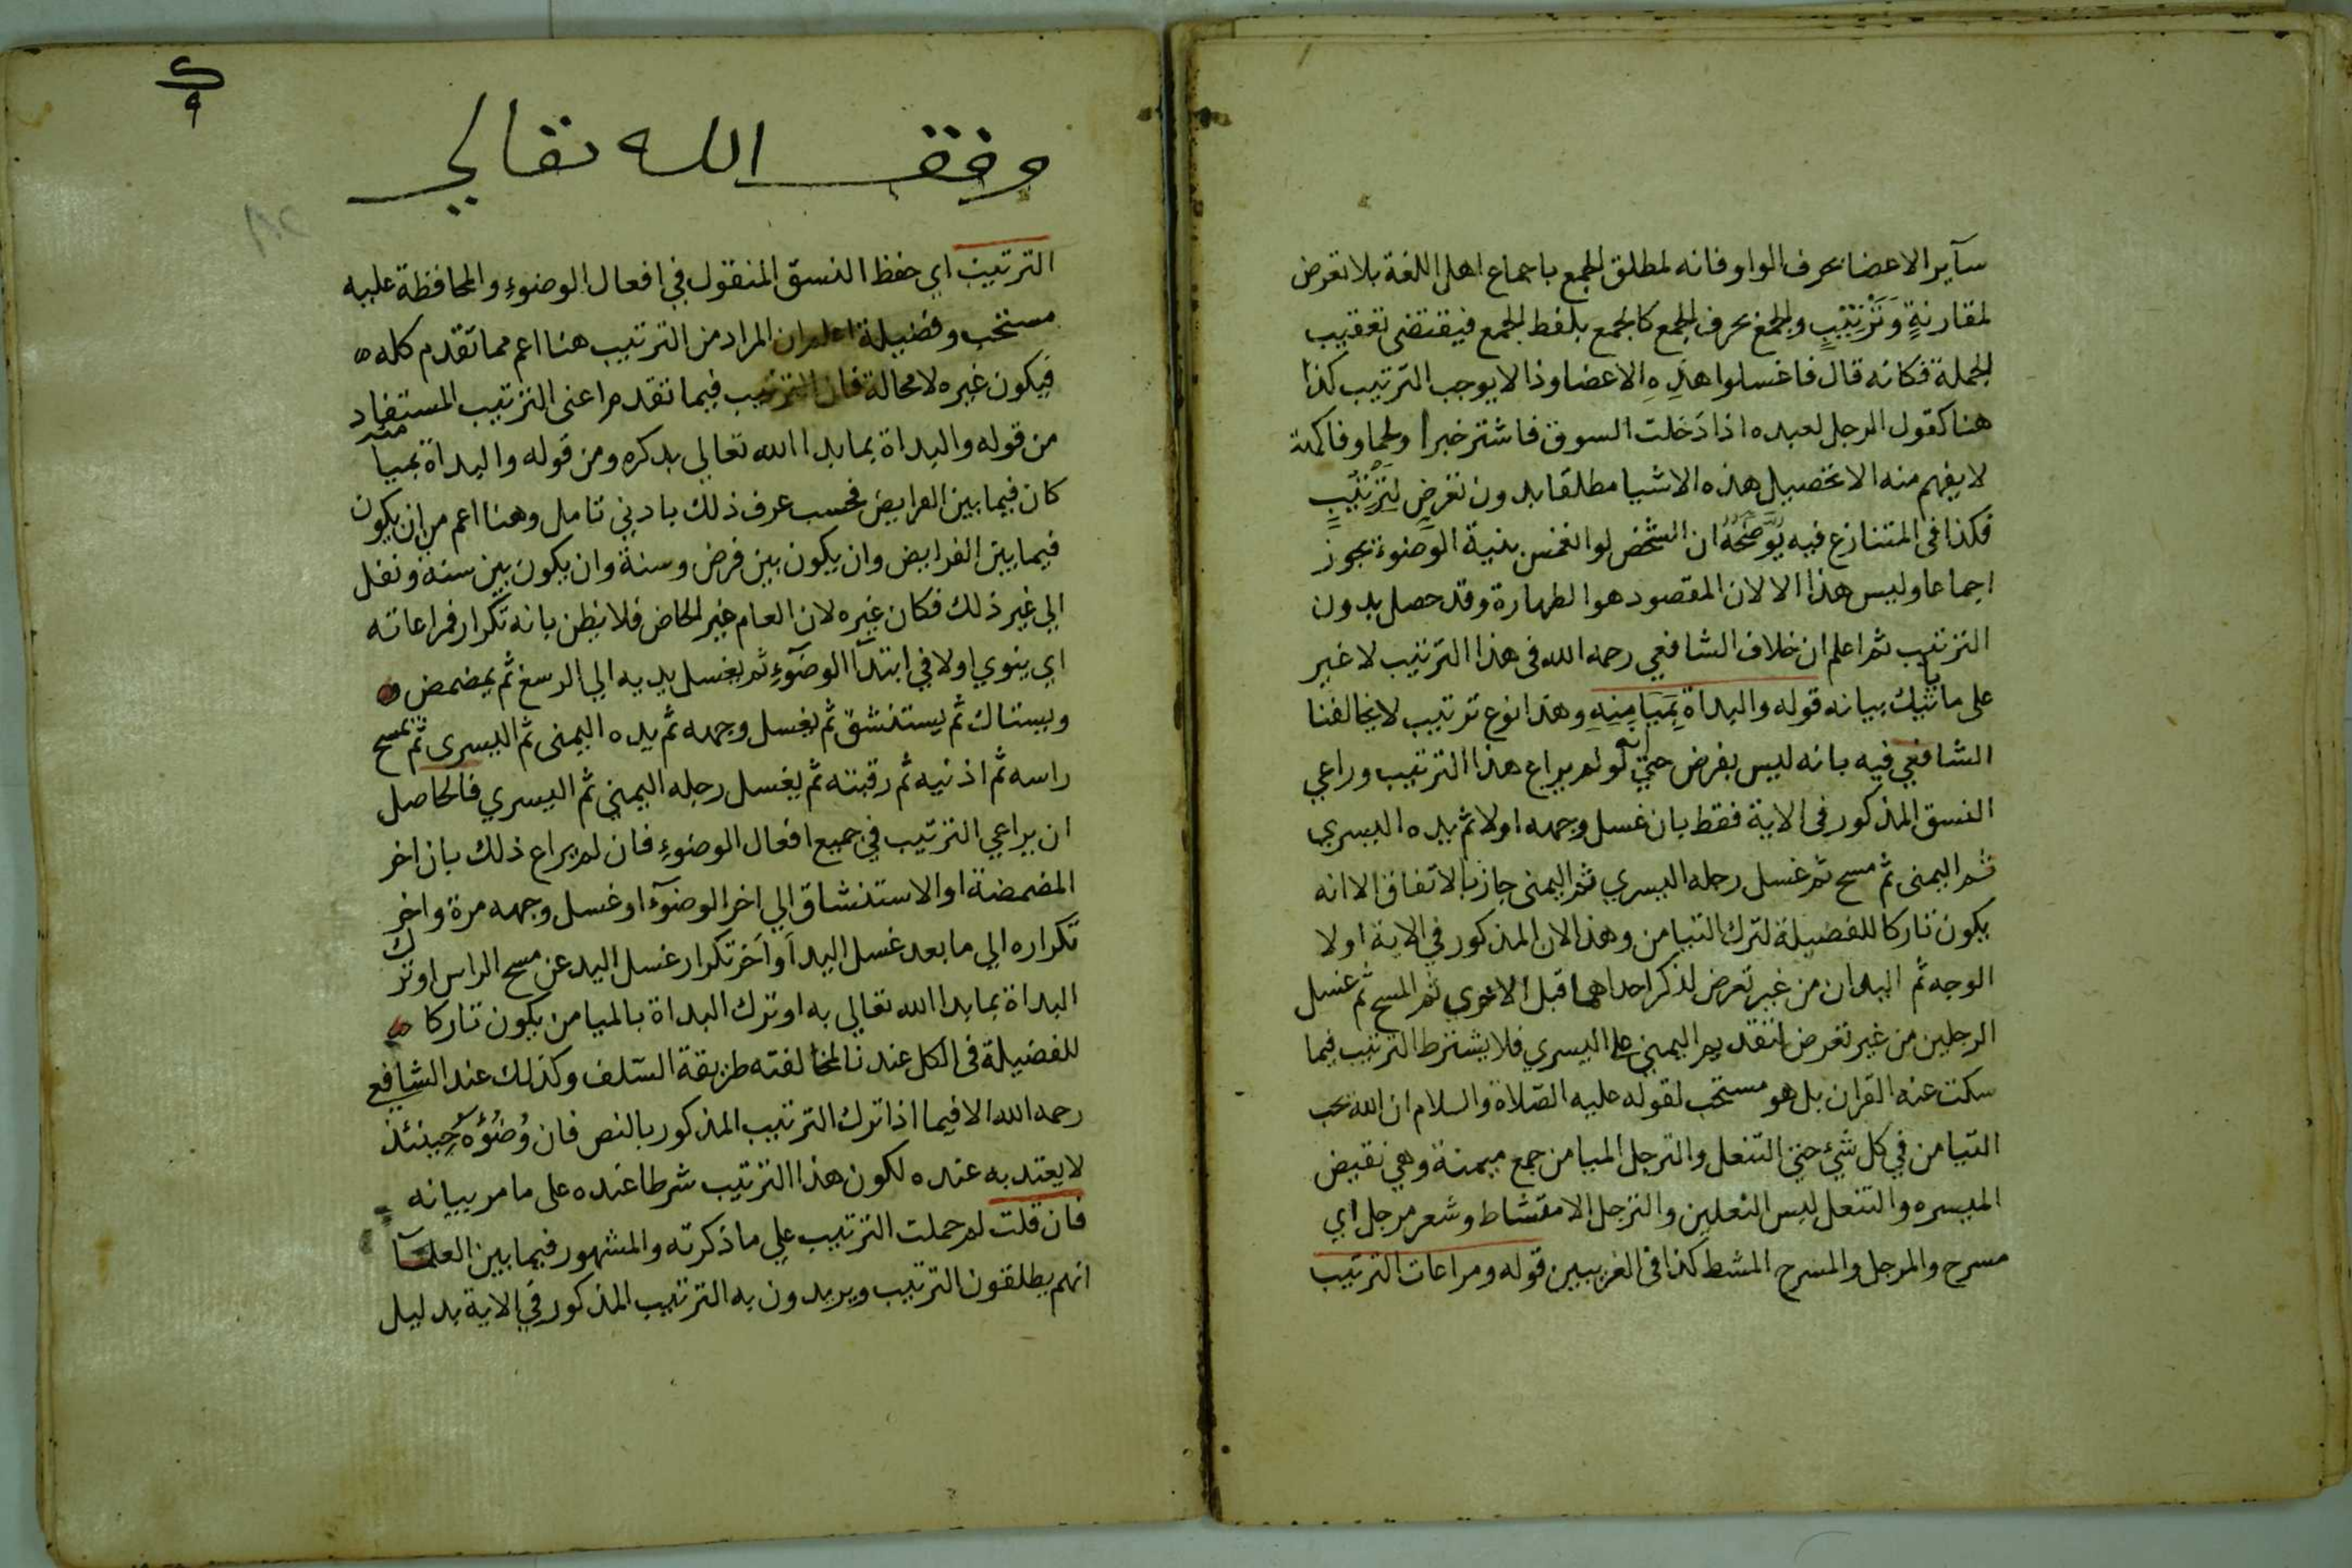 سآير الاعضا بحرف الواو فانه لمطلق الجمع باجماع اهل اللغة بلا تعرض
لمقارنةٍ وَتَرْتيبٍ والجمع بحرف الجمع كالجمع بلفظ الجمع فيقتضى تعقيب
الجملة فكانه قال فاغسلوا هذِهِ الاعضا وذا لا يوجب الترتيب كذا
هنا كقول الرجل لعبده اذا دَخلت السوق فاشتر خبزا ولحما وفاكهة
لا يفهم منه الا تحصيل هذه الاشيا مطلقا بدون تعرضٍ لتَرْتيْبٍ
فكذا فى المتنازع فيه يُوَضّحُهُ ان الشخص لو انغمس بنية الوضوء يجوز
اجماعا وليس هذا الا لان المقصود هو الطهارة وقد حصل بدون
الترتيب ثم اعلم ان خلاف الشافعي رحمه الله فى هذا الترتيب لا غير
على ما ياتيك بيانه قوله والبداة بِمَيَامِنِهِ وهذا نوع ترتيب لا يخالفنا
الشافعي فيه بانه ليس بفرض حتي انه لو لم يراع هذا الترتيب وراعي
النسق المذكور فى الاية فقط بان غسل وجهه اولا ثم يده اليسري
ثم اليمنى ثم مسح ثم غسل رجله اليسري ثم اليمنى جاز بالاتفاق الا انه
يكون تاركا للفضيلة لترك التيامن وهذا لان المذكور في الاية اولا
الوجه ثم اليدان من غير تعرض لذكر احداهما قبل الاخري ثم المسح ثم غسل
الرجلين من غير تعرض لتقديم اليمني على اليسري فلا يشترط الترتيب فيما
سكت عنه القران بل هو مستحب لقوله عليه الصّلاة والسلام ان الله يحب
التيامن في كل شئ حتي التنعل والترجل الميامن جمع ميمنة وهي نقيض
الميسره والتنعل لبس النعلين والترجل الامتشاط وشعر مرجل اي
مسرح والمرجل والمسرح المشط كذا فى الغريبين قوله ومراعات الترتيب
وقف الله تعالي
الترتيب اي حفظ النسق المنقول في افعال الوضوءِ والمحافظة عليه
مستحب وفضيلة اعلم ان المراد من الترتيب هنا اعم مما تقدم كله
فيكون غيره لا محالة فان الترتيب فيما تقدم اعنى الترتيب المستفاد
من قوله والبداة بما بدا الله تعالي بذكره ومن قوله والبداة بميامنه
كان فيما بين الفرايض فحسب عرف ذلك بادني تامل وهنا اعم من ان يكون
فيما بين الفرايض وان يكون بين فرض وسنة وان يكون بين سنة ونفل
الي غير ذلك فكان غيره لان العام غير الخاص فلا يظن بانه تكرار فمراعاته
اي ينوي اولا في ابتدآ الوضوءِ ثم يغسل يديه الي الرسغ ثم يمضمض
ويستاك ثم يستنشق ثم يغسل وجهه ثم يده اليمنى ثم اليسرى ثم يمسح
راسه ثم اذنيه ثم رقبته ثم يغسل رجله اليمني ثم اليسري فالحاصل
ان يراعي الترتيب في جميع افعال الوضوءِ فان لم يراع ذلك بان اخر
المضمضة او الاستنشاق الي اخر الوضوء او غسل وجهه مرة واخر
تكراره الي ما بعد غسل اليد او اخر تكرار غسل اليد عن مسح الراس او ترك
البداة بما بدا الله تعالي به او ترك البداة بالميامن يكون تاركا
للفضيلة فى الكل عندنا لمخالفته طريقة السّلف وكذلك عند الشافعي
رحمه الله الا فيما اذا ترك الترتيب المذكور بالنص فان وُضُوْءَهُ حِينئذ
لا يعتد به عنده لكون هذا الترتيب شرطا عنده على ما مر بيانه
فان قلت لم حملت الترتيب علي ما ذكرته والمشهور فيما بين العلمآ
انهم يطلقون الترتيب ويريدون به الترتيب المذكور في الاية بدليل